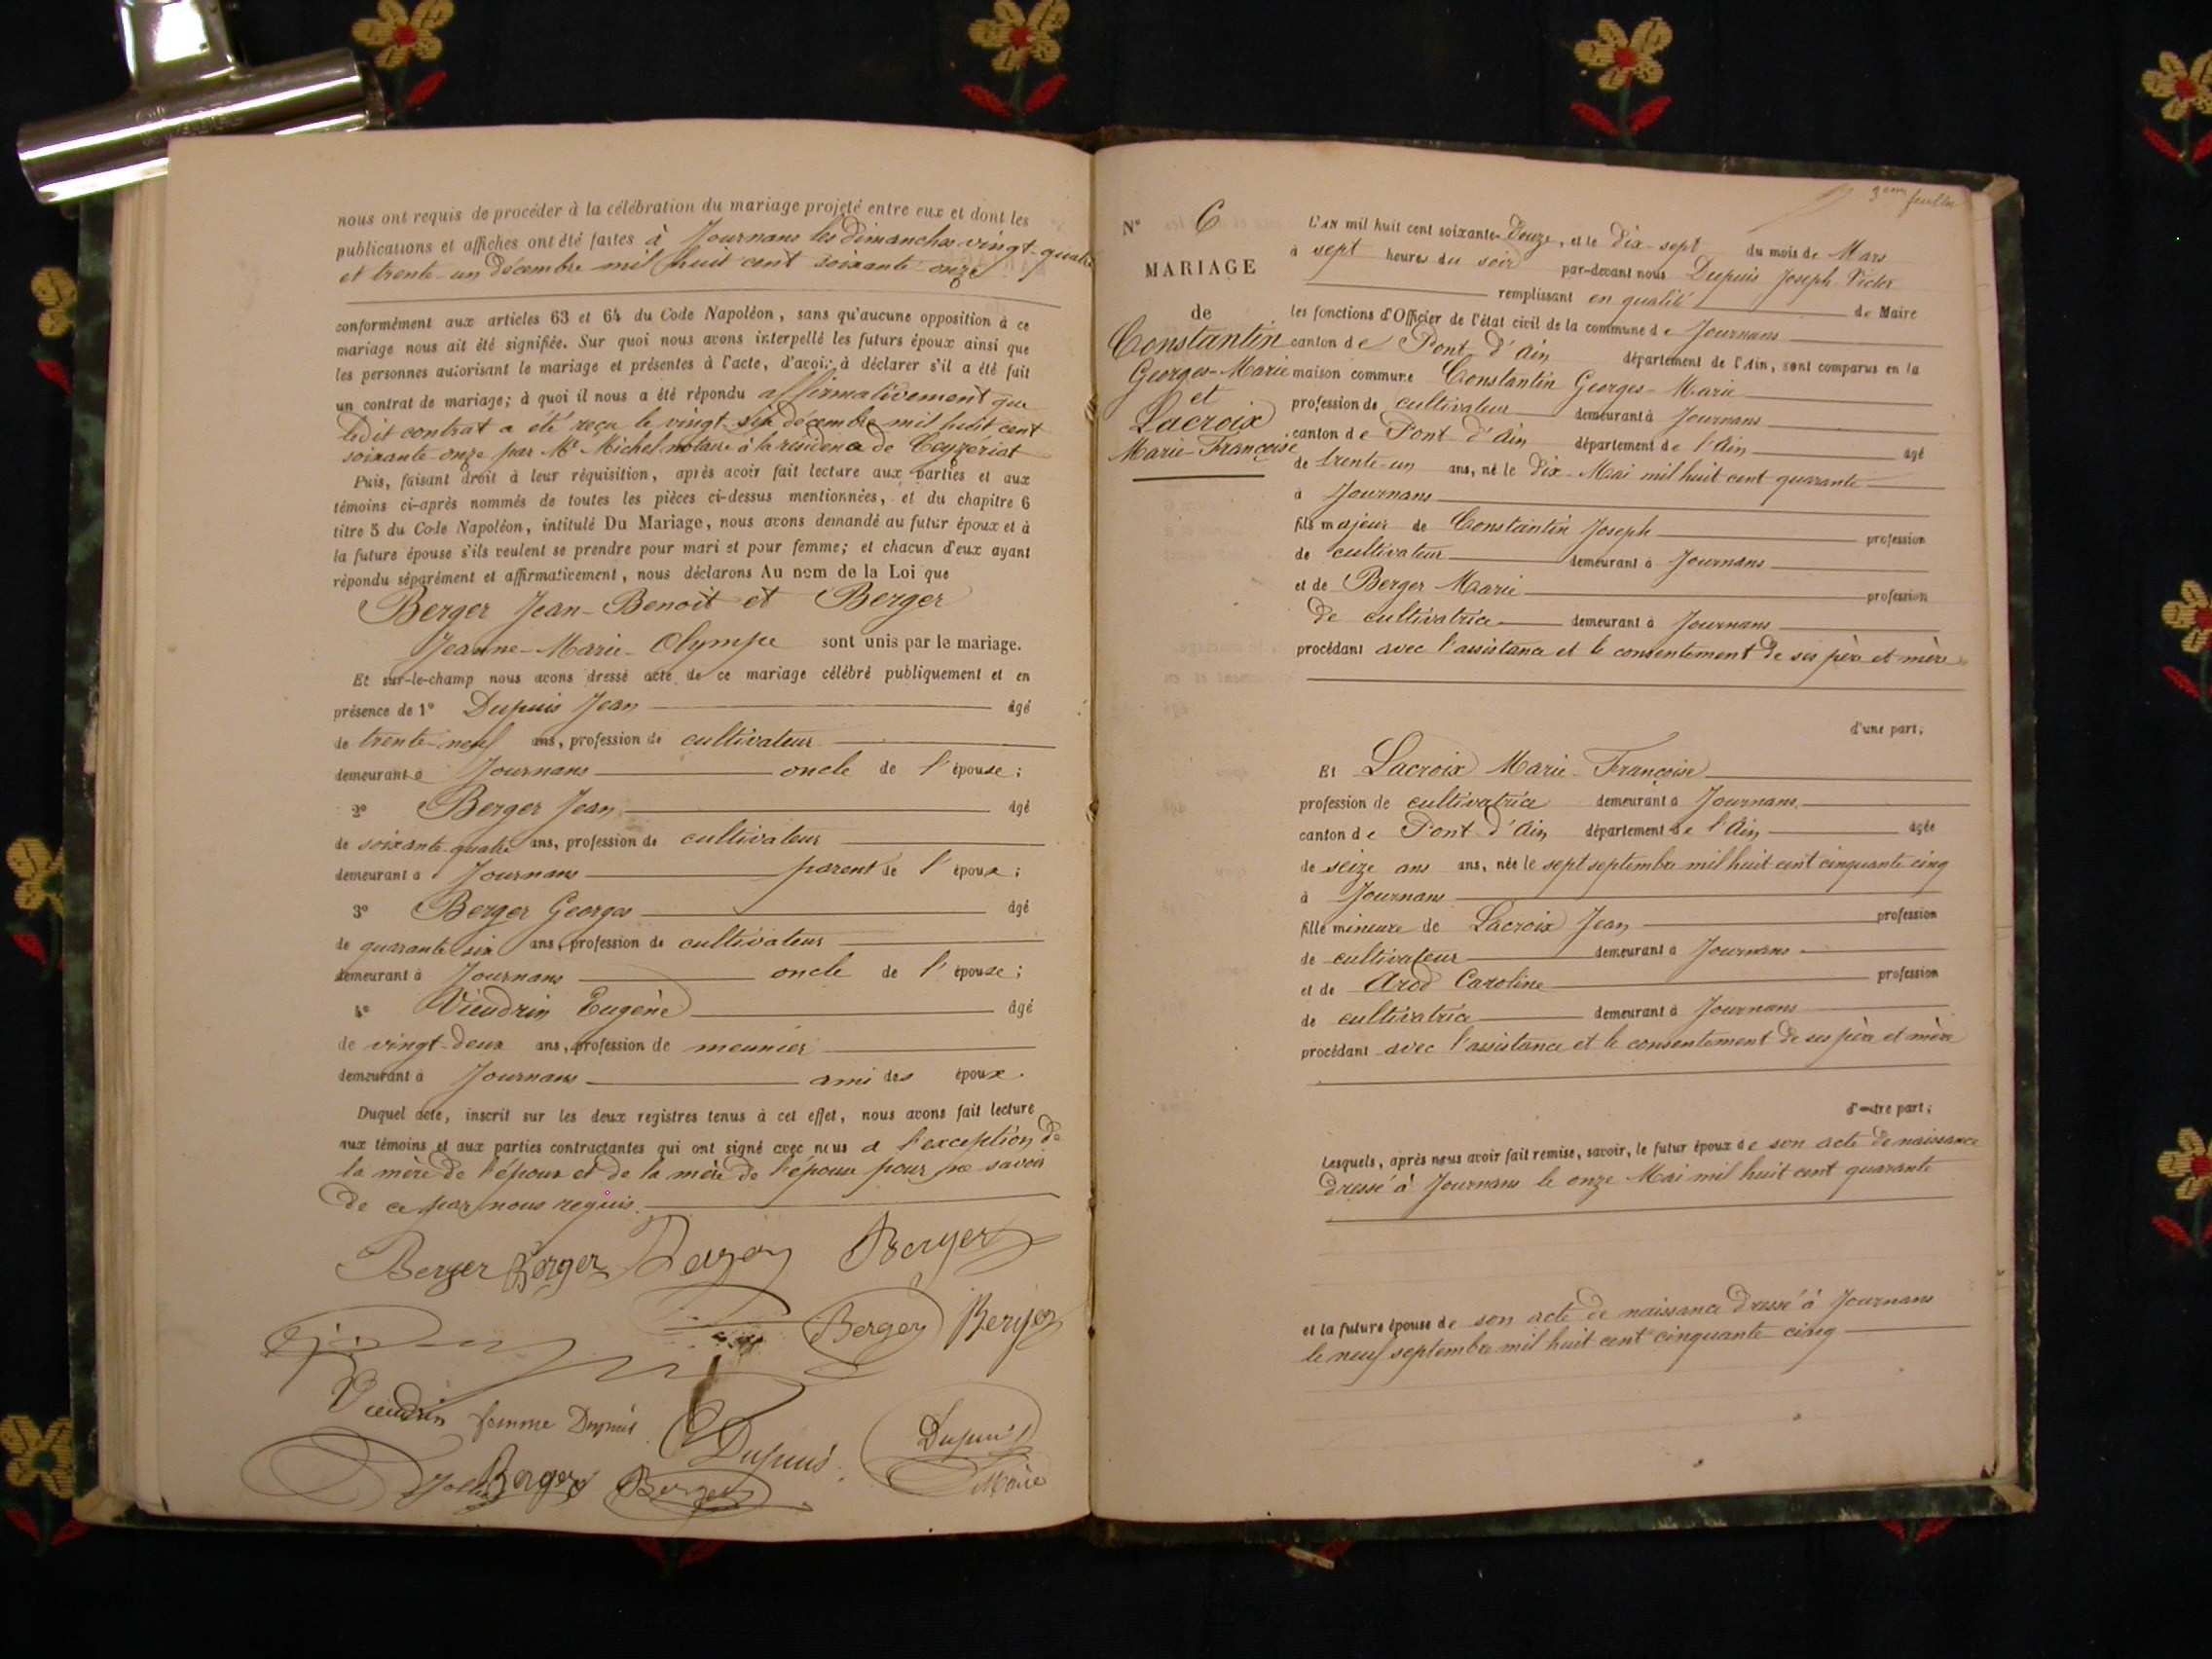 nous ont requis de procéder à la célébration du mariage projeté entre eux et dont les
publications et affiches ont été faites à Journans les dimanches vingt-quatre
et trente-un décembre mil huit cent soixante-onze
conformément aux articles 63 et 64 du Code Napoléon, sans qu'aucune opposition à ce
mariage nous ait été signifiée. Sur quoi nous avons interpellé les futurs époux ainsi que
les personnes autorisant le mariage et présentes à l'acte, d'avoir à déclarer s'il a été fait
un contrat de mariage; à quoi il nous a été répondu affirmativement que
ledit contrat a été reçu le vingt-six décembre mil huit cent
soixante-onze par Me Michel notaire à la résidence de Ceyzériat
Puis, faisant droit à leur réquisition, après avoir fait lecture aux parties et aux
témoins ci-après nommés de toutes les pièces ci-dessus mentionnées, et du chapitre 6
titre 5 du Code Napoléon, intitulé Du Mariage, nous avons demandé au futur époux et à
la future épouse s'ils veulent se prendre pour mari et pour femme; et chacun d'eux ayant
répondu séparément et affirmativement, nous déclarons Au nom de la Loi que
Berger Jean-Benoit et Berger
Jeanne-Marie-Olympe sont unis par le mariage.
Et sur-le-champ nous avons dressé acte de ce mariage célébré publiquement et en
présence de 1° Dupuis Jean âgé
de trente-neuf ans, profession de cultivateur
demeurant à Journans oncle de l'épouse;
2° Berger Jean âgé
de soixante-quatre ans, profession de cultivateur
demeurant à Journans parent de l'époux;
3° Berger Georges âgé
de quarante-six ans, profession de cultivateur
demeurant à Journans oncle de l'épouse;
4° Vieudrin Eugène âgé
de vingt-deux ans, profession de meunier
demeurant à Journans ami des époux.
Duquel acte, inscrit sur les deux registres tenus à cet effet, nous avons fait lecture
aux témoins et aux parties contractantes qui ont signé avec nous à l'exception de
la mère de l'époux et de la mère de l'époux pour ne savoir
de ce par nous requis.
Berger Berger Berger
Berger Berger
Vieudrin femme Dupuis Dupuis Dupuis
Berger Berger Maire
3eme feuillet
N° 6
MARIAGE
de
Constantin
Georges-Marie
et
Lacroix
Marie-Françoise
L'AN mil huit cent soixante-Douze, et le Dix-sept du mois de Mars
à sept heures du soir par-devant nous Dupuis Joseph-Victor
remplissant en qualité de Maire
les fonctions d'Officier de l'état civil de la commune de Journans
canton de Pont-d'Ain département de l'Ain, sont comparus en la
maison commune Constantin Georges-Marie
profession de cultivateur demeurant à Journans
canton de Pont-d'Ain département de l'Ain âgé
de trente-un ans, né le Dix-Mai mil huit cent quarante
à Journans
fils majeur de Constantin Joseph profession
de cultivateur demeurant à Journans
et de Berger Marie profession
de cultivatrice demeurant à Journans
procédant avec l'assistance et le consentement de ses père et mère
d'une part;
Et Lacroix Marie-Françoise
profession de cultivatrice demeurant à Journans
canton de Pont-d'Ain département de l'Ain âgée
de seize ans ans, née le sept septembre mil huit cent cinquante cinq
à Journans
fille mineure de Lacroix Jean profession
de cultivateur demeurant à Journans
et de Arod Caroline profession
de cultivatrice demeurant à Journans
procédant avec l'assistance et le consentement de ses père et mère
d'autre part;
Lesquels, après nous avoir fait remise, savoir, le futur époux de son acte de naissance
dressé à Journans le onze Mai mil huit cent quarante
et la future épouse de son acte de naissance dressé à Journans
le neuf septembre mil huit cent cinquante-cinq